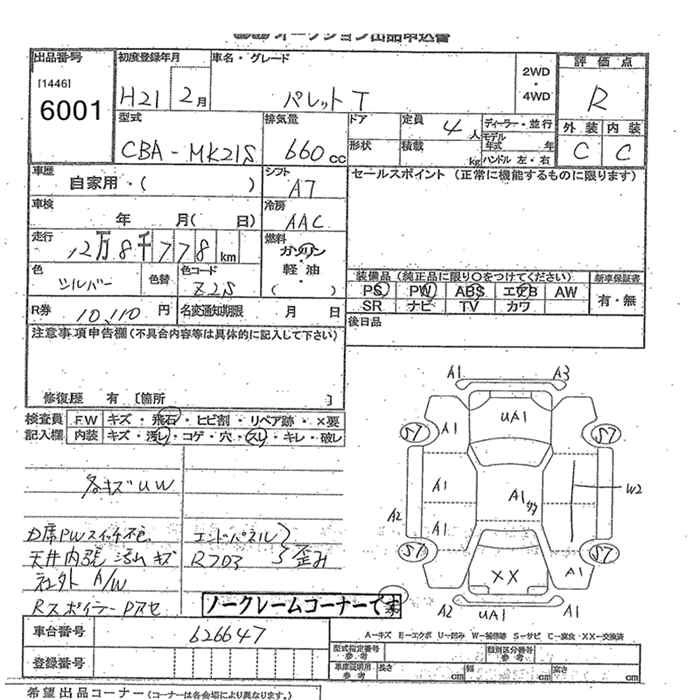 オークション出品申込書
出品番号 初度登録年月 車名・グレード 評価点
[1446] 2WD・4WD
6001 H21 2月 パレット T R
型式 排気量 ドア 定員 4人 ディーラー・並行 外装 内装
モデル年式 年
CBA-MK21S 660cc 形状 積載 kg ハンドル 左・右 C C
車歴 シフト セールスポイント (正常に機能するものに限ります)
自家用・( ) A7
車検 冷房
年 月( 日) AAC
走行 燃料
12万8千778km ガソリン・軽油
色 色替 色コード ( ) 装備品 (純正品に限り○をつけてください) 新車保証書
シルバー Z2S PS PW ABS エアB AW 有・無
SR ナビ TV カワ
R券 10,110円 名変通知期限 月 日 後日品
注意事項申告欄 (不具合内容等は具体的に記入して下さい)
修復歴 有 [箇所 ]
検査員 F.W キズ・飛石・ヒビ割・リペア跡・×要
記入欄 内装 キズ・汚レ・コゲ・穴・スレ・キレ・破レ
A1 A3
UA1
S7 A1 S7
各キズUW
A1 A1 W2
A2 A1
D席PWスイッチ不 エンドパネル
天井内張 汚ム キズ Rフロア 歪み
S7 S7
社外 A/W XX A1
Rスポイラー Pアセ
ノークレームコーナーで
A2 UA1 A1
車台番号 626647
A-キズ E-エクボ U-凹み W-補修跡 S-サビ C-腐食 XX-交換済
登録番号 型式指定番号 参考 類別区分番号 参考
車庫証明用 参考 長さ cm 幅 cm 高さ cm
希望出品コーナー (コーナーは各会場により異なります。)